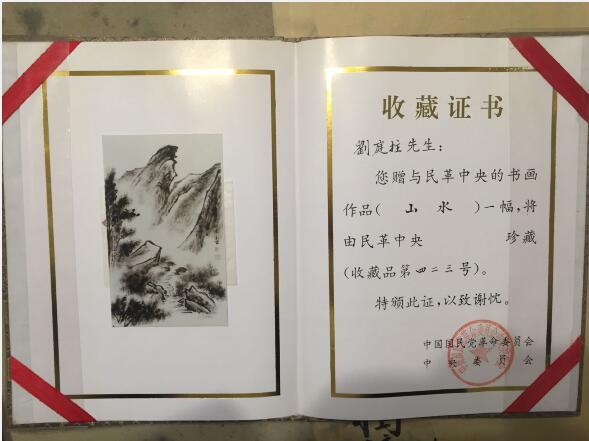 收藏证书
劉庭柱先生：
您赠与民革中央的书画
作品（ 山 水 ）一幅，将
由民革中央 珍藏
（收藏品第四二三号）。
特颁此证，以致谢忱。
中国国民党革命委员会
中央委员会